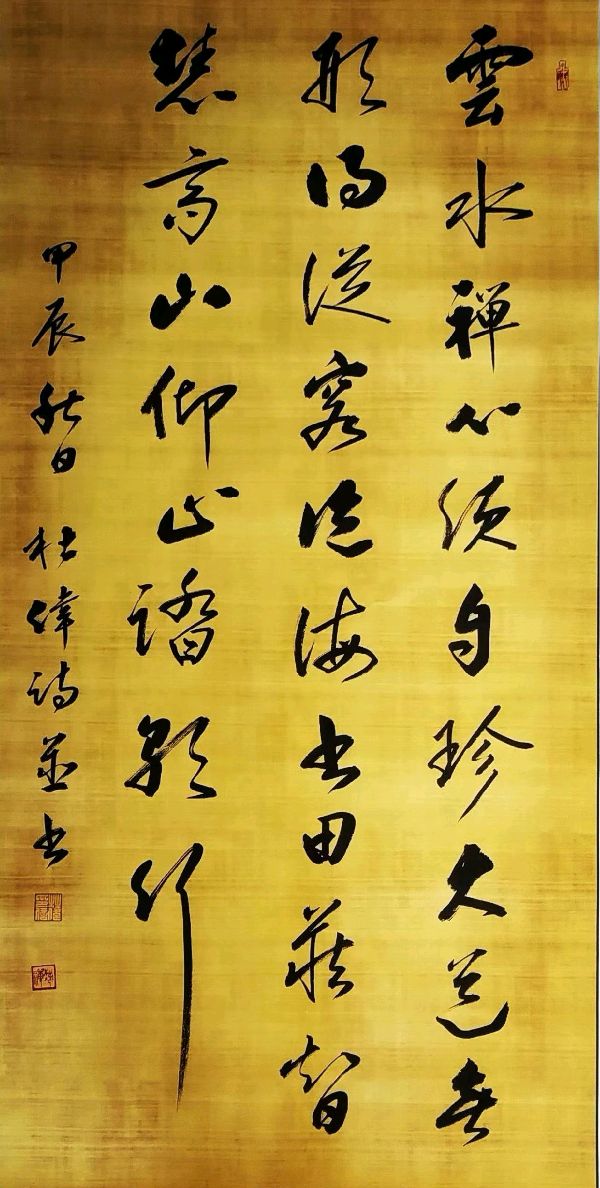 雲水禪心須自珍大道無
形得從容德海書田藏智
慧高山仰止踏歌行
甲辰秋日 杜偉詩並書